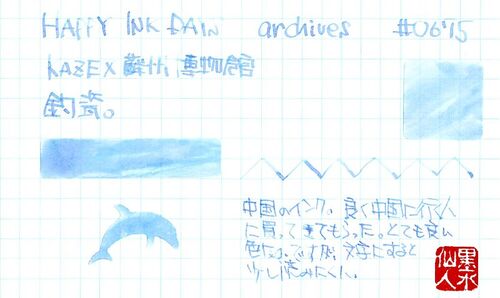 HAPPY INK RAIN archives #0615
KAZE×蘇州博物館
鈞瓷。
中国のインク。良く中国に行く人
に買って来てもらった。とても良い
色なんですが、文字にすると
少し読みにくい。
墨水
仙人